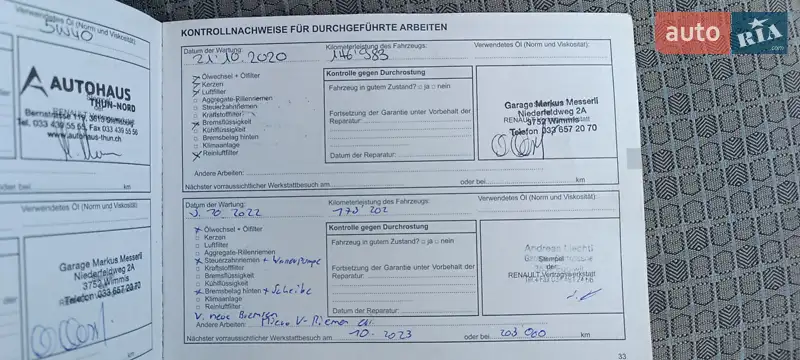 auto RIA .com
KONTROLLNACHWEISE FÜR DURCHGEFÜHRTE ARBEITEN
Verwendetes Öl (Norm und Viskosität):
5W40
AUTOHAUS
THUN-NORD
Bernstrasse
Tel. 033 439 55 55, Fax 033 439 55 56
www.autohaus-thun.ch
der bei km
Verwendetes Öl (Norm und Viskosität):
Garage Markus Messerli
Niederfeldweg 2A
3752 Wimmis
Telefon 033 657 20 70
Datum der Wartung: Kilometerleistung des Fahrzeugs: Verwendetes Öl (Norm und Viskosität):
21.10.2020 146'983
x Ölwechsel + Ölfilter
x Kerzen
x Luftfilter
Aggregate-Riilenriemen
Steuerzahnriemen
Kraftstoffilter
x Bremsflüssigkeit
Kühlflüssigkeit
Bremsbelag hinten
Klimaanlage
x Reinluftfilter
Kontrolle gegen Durchrostung
Fahrzeug in gutem Zustand? ja nein
Fortsetzung der Garantie unter Vorbehalt der
Reparatur:
Datum der Reparatur:
Garage Markus Messerli
Niederfeldweg 2A
3752 Wimmis
Telefon 033 657 20 70
Andere Arbeiten:
Nächster vorraussichtlicher Werkstattbesuch am oder bei km
Datum der Wartung: Kilometerleistung des Fahrzeugs: Verwendetes Öl (Norm und Viskosität):
10.2022 173 202
x Ölwechsel + Ölfilter
Kerzen
Luftfilter
Aggregate-Riilenriemen
x Steuerzahnriemen + Wasserpumpe
Kraftstoffilter
Bremsflüssigkeit
Kühlflüssigkeit
x Bremsbelag hinten + Scheibe
Klimaanlage
Reinluftfilter
V. neue Bremsen
Kontrolle gegen Durchrostung
Fahrzeug in gutem Zustand? ja nein
Fortsetzung der Garantie unter Vorbehalt der
Reparatur:
Datum der Reparatur:
Andreas
Stempel
der
RENAULT-Vertragswerkstatt
Andere Arbeiten: Micro V-Riemen
Nächster vorraussichtlicher Werkstattbesuch am 10.2023 oder bei 203 000 km
33